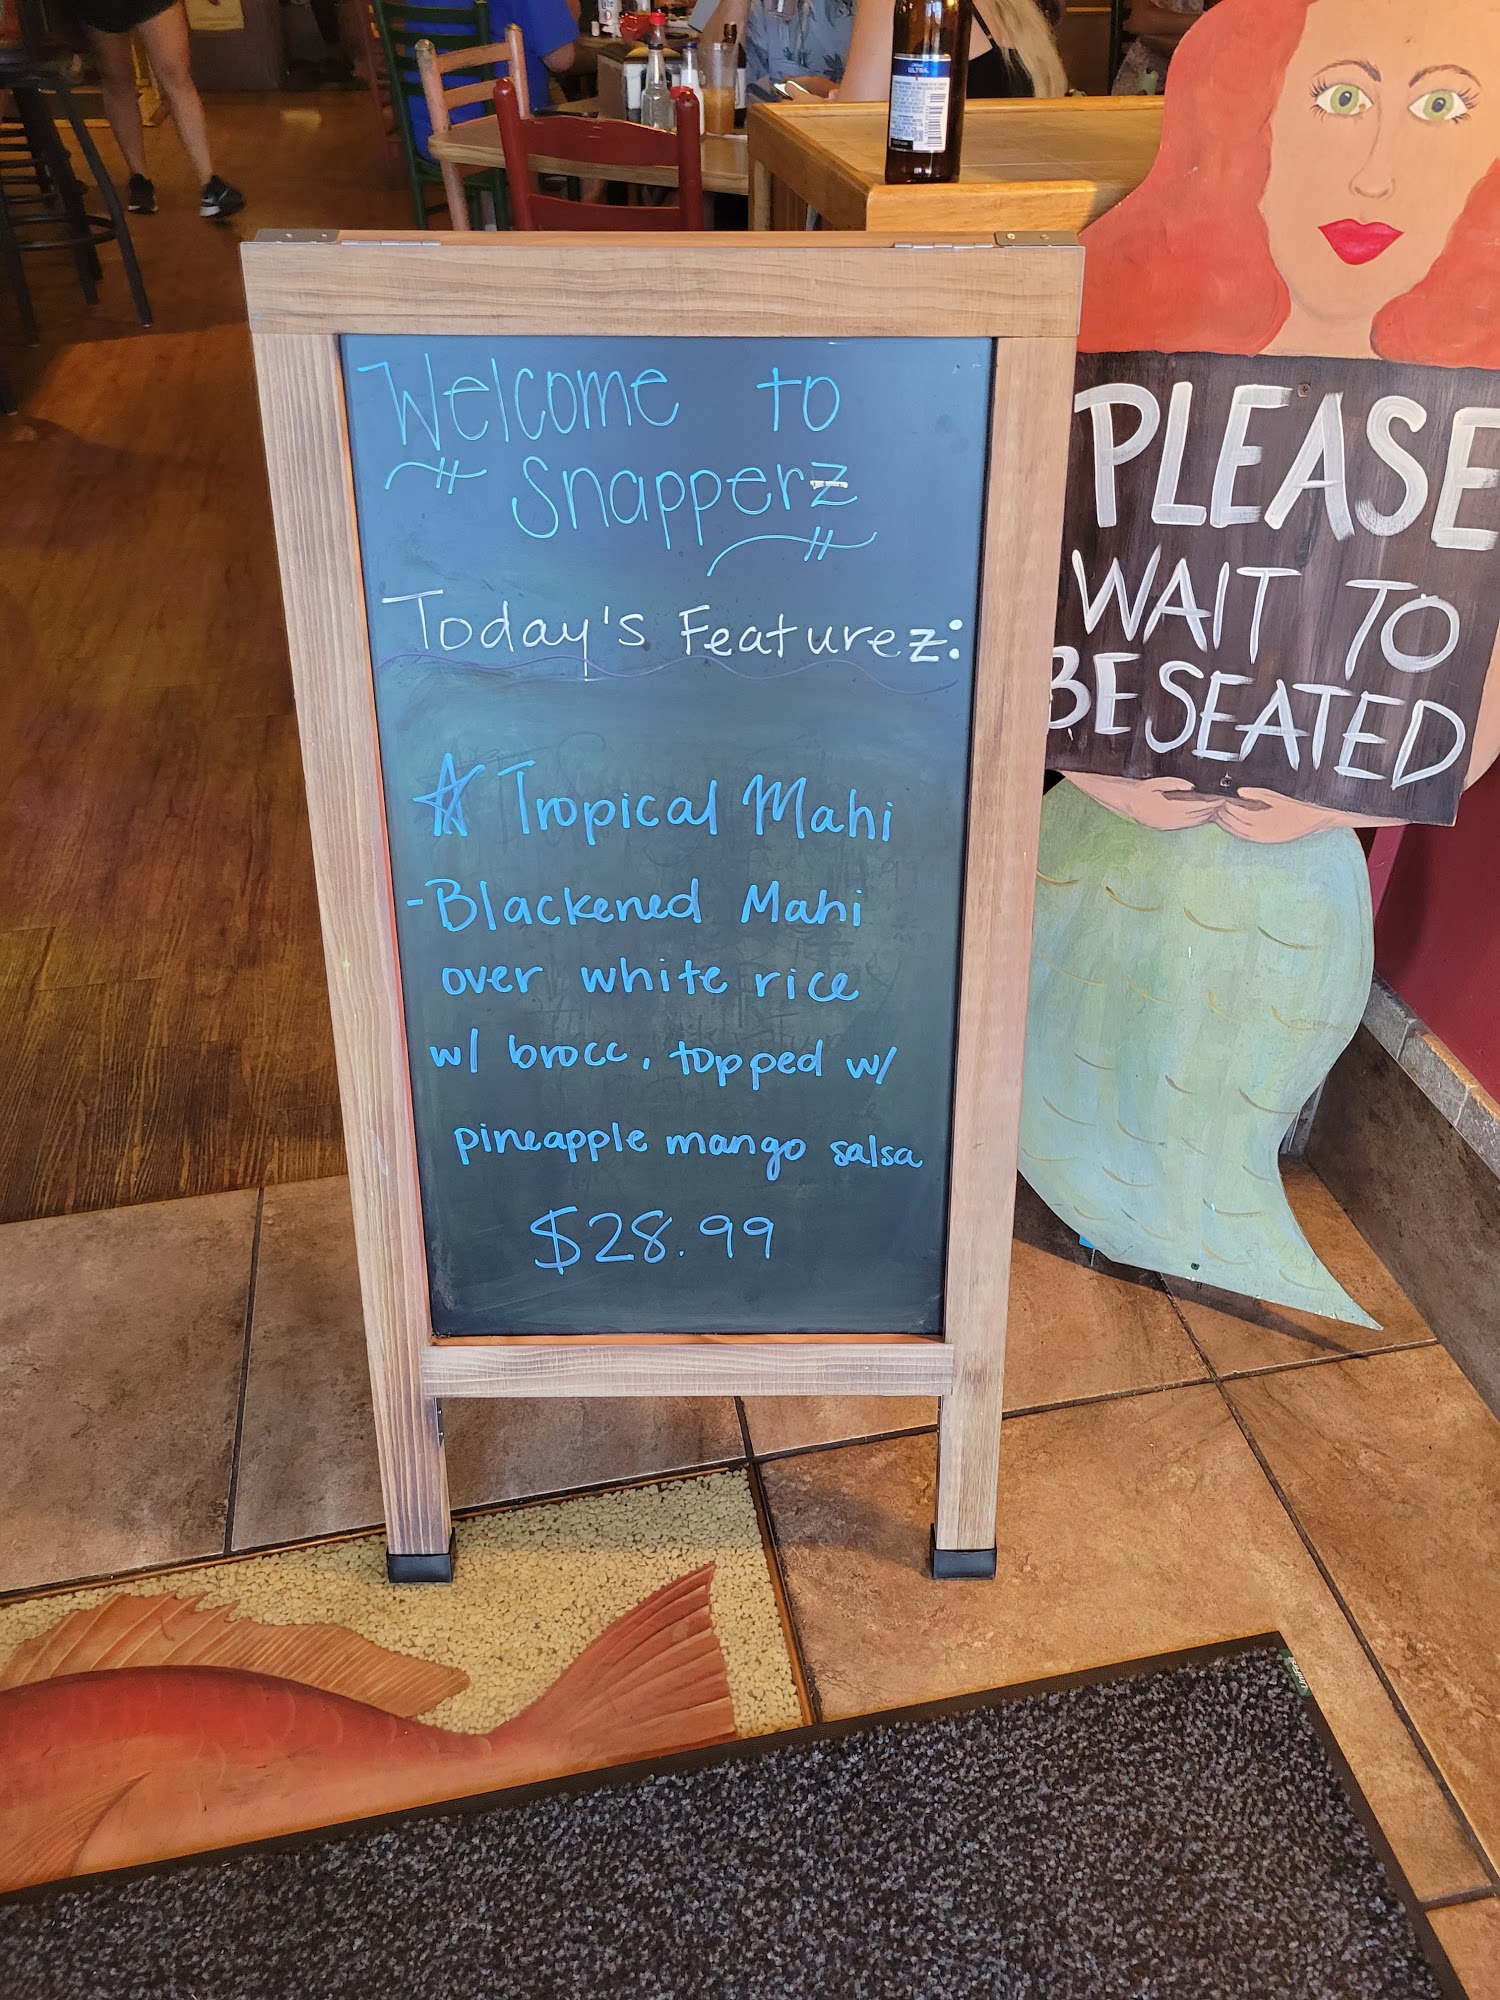 Welcome to
Snapperz
Today's Featurez:
Tropical Mahi
-Blackened Mahi
over white rice
w/ brocc, topped w/
pineapple mango salsa
$28.99
PLEASE
WAIT TO
BE SEATED
ULTRA